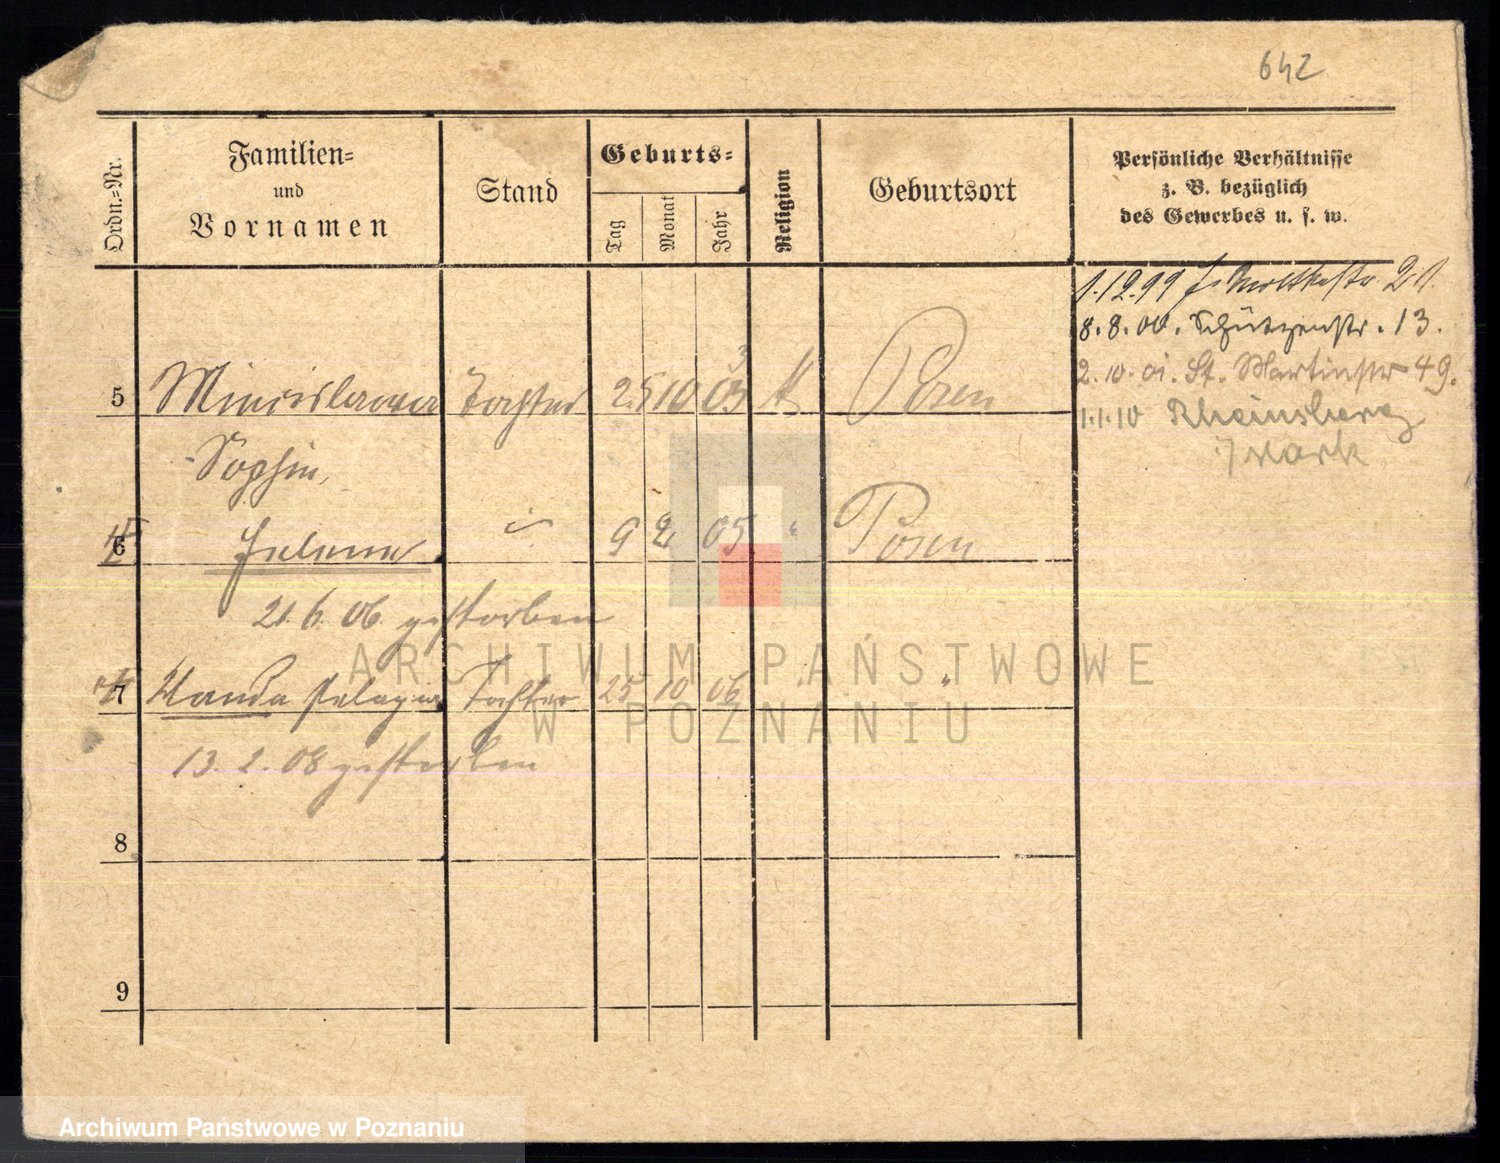 642
Ordn.-Nr.
Familien-
und
Vornamen
Stand
Geburts-
Tag
Monat
Jahr
Religion
Geburtsort
Persönliche Verhältnisse
z. B. bezüglich
des Gewerbes u. s. w.
1.12.99 Moltkestr. 21.
8.8.00. Schützenstr. 13.
2.10.01. St. Martinstr 49.
1.1.10 Rheinsberg
Mark
5 Mincislawa Tochter 25 10 03 3 K Posen
Sophie,
6 Helene 9 2 05 " Posen
21.6.06 gestorben
7 Wanda Pelagia Tochter 25 10 06 "
13.2.08 gestorben
8
9
ARCHIWUM PAŃSTWOWE
W POZNANIU
Archiwum Państwowe w Poznaniu